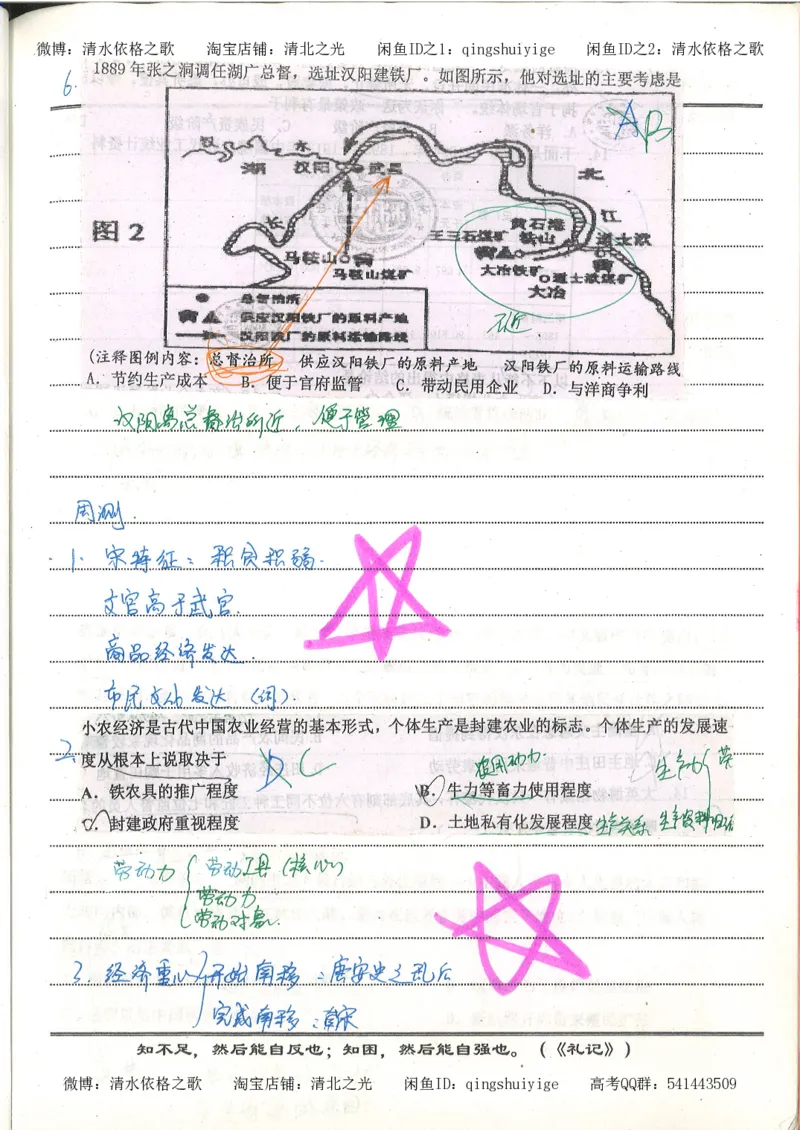 微博：清水依格之歌 淘宝店铺：清北之光 闲鱼ID之1：qingshuiyige 闲鱼ID之2：清水依格之歌
6. 1889年张之洞调任湖广总督，选址汉阳建铁厂。如图所示，他对选址的主要考虑是
A B
汉 水
湖 汉阳 武昌 北
图2
长 江
黄石港
王三石煤矿 铁山 道士洑
马鞍山
马鞍山煤矿
大冶铁矿 道士洑煤矿
大冶
总督治所
供应汉阳铁厂的原料产地
汉阳铁厂的原料运输路线
近
(注释图例内容：总督治所 供应汉阳铁厂的原料产地 汉阳铁厂的原料运输路线
A. 节约生产成本 B. 便于官府监管 C. 带动民用企业 D. 与洋商争利
汉阳离总督治所近，便于管理
周测.
1. 宋特征：积贫积弱.
文官高于武官.
商品经济发达.
市民文化发达（词）
小农经济是古代中国农业经营的基本形式，个体生产是封建农业的标志。个体生产的发展速
2. 度从根本上说取决于
A. 铁农具的推广程度 B. 牛力等畜力使用程度
C. 封建政府重视程度 D. 土地私有化发展程度 生产关系
劳动力 劳动工具（核心）
劳动力
劳动对象.
3. 经济重心 开始南移：唐安史之乱后
完成南移：南宋
知不足，然后能自反也；知困，然后能自强也。（《礼记》）
微博：清水依格之歌 淘宝店铺：清北之光 闲鱼ID：qingshuiyige 高考QQ群：541443509